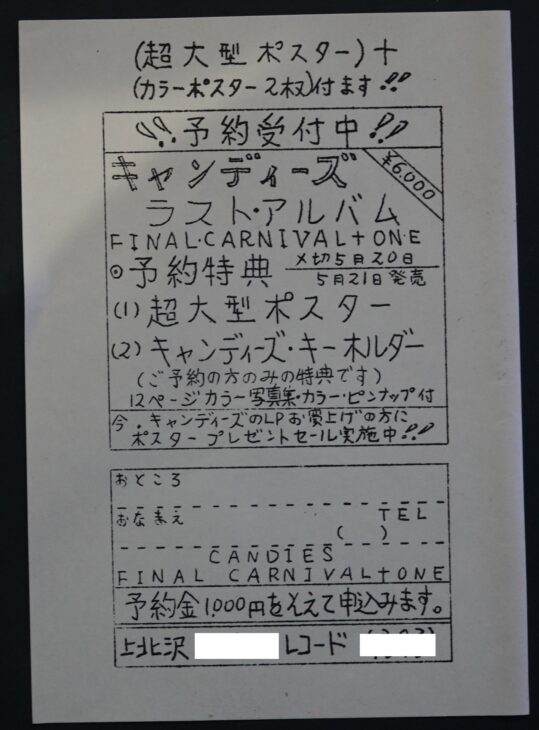 (超大型ポスター)+
(カラーポスター2枚)付ます!!
!!予約受付中!!
キャンディーズ
¥6,000
ラスト・アルバム
FINAL・CARNIVAL+ON・E
◎予約特典
〆切5月20日
5月21日発売
(1)超大型ポスター
(2)キャンディーズ・キーホルダー
(ご予約の方のみの特典です)
12ページカラー写真集・カラー・ピンナップ付
今.キャンディーズのLPお買上げの方に
ポスタープレゼントセール実施中!!
おところ
おなまえ TEL
( )
CANDIES
FINAL CARNIVAL+ONE
予約金1,000円をそえて申込みます。
上北沢 レコード